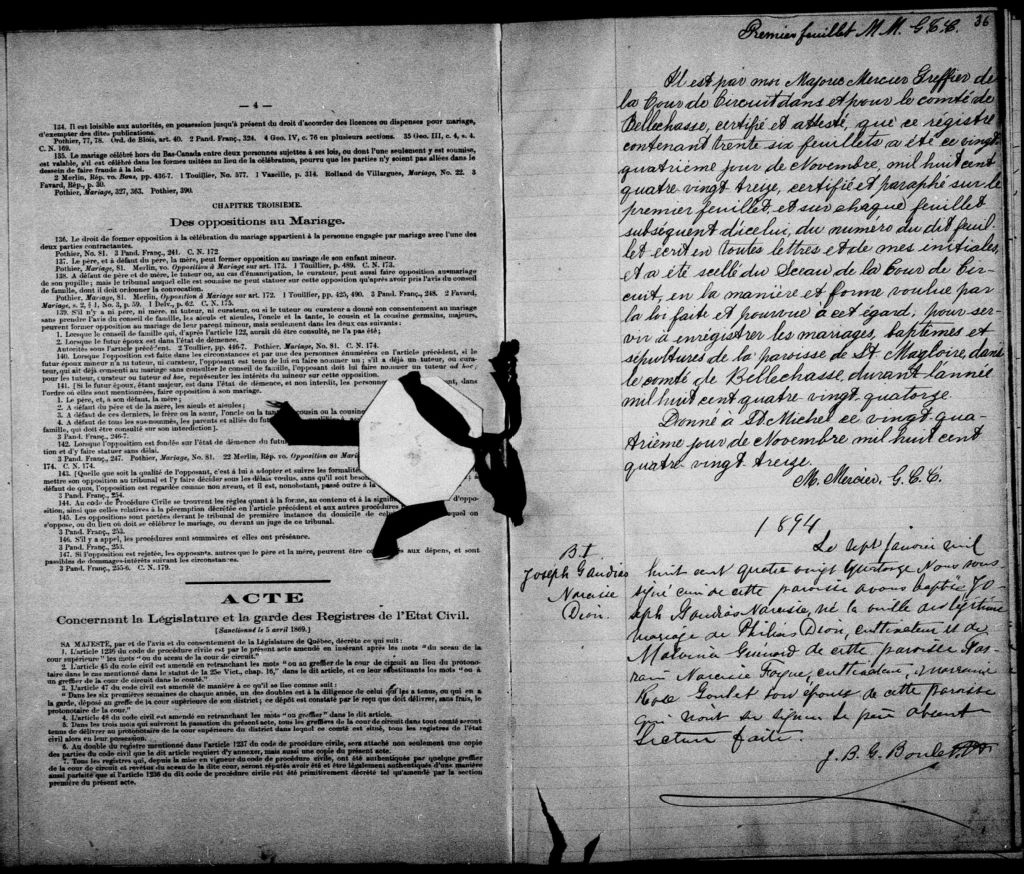 — 4 —
134. Il est loisible aux autorités, en possession jusqu'à présent du droit d'accorder des licences ou dispenses pour mariage,
d'exempter des dites publications.
Pothier, 77, 78. Ord. de Blois, art. 40. 2 Pand. Franç., 324. 4 Geo. IV, c. 76 en plusieurs sections. 35 Geo. III, c. 4, s. 4.
C. N. 169.
135. Le mariage célébré hors du Bas-Canada entre deux personnes sujettes à ses lois, ou dont l'une seulement y est soumise,
est valable, s'il est célébré dans les formes usitées au lieu de la célébration, pourvu que les parties n'y soient pas allées dans le
dessein de faire fraude à la loi.
2 Merlin, Rép. vo. Bans, pp. 436-7. 1 Toullier, No. 577. 1 Vazeille, p. 314. Rolland de Villargues, Mariage, No. 22. 3
Favard, Rép., p. 30.
Pothier, Mariage, 327, 363. Pothier, 390.
CHAPITRE TROISIEME.
Des oppositions au Mariage.
136. Le droit de former opposition à la célébration du mariage appartient à la personne engagée par mariage avec l'une des
deux parties contractantes.
Pothier, No. 81. 3 Pand. Franç., 241. C. N. 172
137. Le père, et à défaut du père, la mère, peut former opposition au mariage de son enfant mineur.
Pothier, Mariage, 81. Merlin, vo. Opposition à Mariage sur art. 173. 1 Toullier, p. 489. C. N. 173.
138. A défaut de père et de mère, le tuteur ou, au cas d'émancipation, le curateur, peut aussi faire opposition au mariage
de son pupille; mais le tribunal auquel elle est soumise ne peut statuer sur cette opposition qu'après avoir pris l'avis du conseil
de famille, dont il doit ordonner la convocation.
Pothier, Mariage, 81. Merlin, Opposition à Mariage sur art. 172. 1 Toullier, pp. 425, 490. 3 Pand. Franç., 248. 2 Favard,
Mariage, s. 2, § 1, No. 3, p. 59. 1 Delv., p. 62. C. N. 175.
139. S'il n'y a ni père, ni mère, ni tuteur, ni curateur, ou si le tuteur ou curateur a donné son consentement au mariage
sans prendre l'avis du conseil de famille, les aïeuls et aïeules, l'oncle et la tante, le cousin et la cousine germains, majeurs,
peuvent former opposition au mariage de leur parent mineur, mais seulement dans les deux cas suivants:
1. Lorsque le conseil de famille qui, d'après l'article 122, aurait dû être consulté, ne l'a pas été;
2. Lorsque le futur époux est dans l'état de démence.
Autorités sous l'article précédent. 2 Toullier, pp. 446-7. Pothier, Mariage, No. 81. C. N. 174.
140. Lorsque l'opposition est faite dans les circonstances et par une des personnes énumérées en l'article précédent, si le
futur époux mineur n'a ni tuteur, ni curateur, l'opposant est tenu de lui en faire nommer un; s'il a déjà un tuteur, ou cura-
teur qui ait déjà consenti au mariage sans consulter le conseil de famille, l'opposant doit lui faire nommer un tuteur ad hoc,
pour les tuteur, curateur ou tuteur ad hoc, représenter les intérêts du mineur sur cette opposition.
141. [Si le futur époux, étant majeur, est dans l'état de démence, et non interdit, les personnes dans
l'ordre où elles sont mentionnées, faire opposition à son mariage.
1. Le père, et, à son défaut, la mère;
2. A défaut du père et de la mère, les aïeuls et aïeules;
3. A défaut de ces derniers, le frère ou la sœur, l'oncle ou la cousin ou la cousine
4. A défaut de tous les sus-nommés, les parents et alliés du
famille, qui doit être consulté sur son interdiction].
3 Pand. Franç., 246-7.
142. Lorsque l'opposition est fondée sur l'état de démence du futur
tion et d'y faire statuer sans délai.
3 Pand. Franç., 247. Pothier, Mariage, No. 81. 22 Merlin, Rép. vo. Opposition au
174. C. N. 174.
143. [Quelle que soit la qualité de l'opposant, c'est à lui à adopter et suivre les formalités
mettre son opposition au tribunal et l'y faire décider sous les délais voulus, sans qu'il soit besoin
défaut de quoi, l'opposition est regardée comme non avenue, et il est, nonobstant, passé outre à la
3 Pand. Franç., 254.
144. Au code de Procédure Civile se trouvent les règles quant à la forme, au contenu et à la d'oppo-
sition, ainsi que celles relatives à la péremption décrétée en l'article précédent et aux autres procédures
145. Les oppositions sont portées devant le tribunal de première instance du domicile de on
s'oppose, ou du lieu où doit se célébrer le mariage, ou devant un juge de ce tribunal.
3 Pand. Franç., 253.
146. S'il y a appel, les procédures sont sommaires et elles ont préséance.
3 Pand. Franç., 253.
147. Si l'opposition est rejetée, les opposants, autres que le père et la mère, peuvent être aux dépens, et sont
passibles de dommages-intérêts suivant les circonstances.
3 Pand. Franç., 255-6. C. N. 179.
ACTE
Concernant la Législature et la garde des Registres de l'Etat Civil.
[Sanctionné le 5 avril 1869.]
SA MAJESTE, par et de l'avis et du consentement de la Législature de Québec, décrète ce qui suit:
1. L'article 1236 du code de procédure civile est par le présent acte amendé en insérant après les mots "du sceau de la
cour supérieure" les mots "ou du sceau de la cour de circuit."
2. L'article 45 du code civil est amendé en retranchant les mots "ou au greffier de la cour de circuit au lieu du protono-
taire dans le cas mentionné dans le statut de la 25e Vict., chap. 16," dans le dit article, et en leur substituant les mots "ou à
un greffier de la cour de circuit dans le comté."
3. L'article 47 du code civil est amendé de manière à ce qu'il se lise comme suit:
"Dans les six premières semaines de chaque année, un des doubles est à la diligence de celui qui les a tenus, ou qui en a
la garde, déposé au greffe de la cour supérieure de son district; ce dépôt est constaté par le reçu que doit délivrer, sans frais, le
protonotaire de la cour."
4. L'article 48 du code civil est amendé en retranchant les mots "ou greffier" dans le dit article.
5. Dans les trois mois qui suivront la passation du présent acte, tous les greffiers de la cour de circuit dans tout comté seront
tenus de délivrer au protonotaire de la cour supérieure du district dans lequel ce comté est situé, tous les registres de l'état
civil alors en leur possession.
6. Au double du registre mentionné dans l'article 1237 du code de procédure civile, sera attaché non seulement une copie des
parties du code civil que le dit article requiert d'y annexer, mais aussi une copie du présent acte.
7. Tous les registres qui, depuis la mise en vigueur du code de procédure civile, ont été authentiqués par quelque greffier
de la cour de circuit et revêtus du sceau de la dite cour, seront réputés avoir été et être légalement authentiqués d'une manière
aussi parfaite que si l'article 1236 du dit code de procédure civile eût été primitivement décrété tel qu'amendé par la section
première du présent acte.
36
Premier feuillet M. M. G. C. C.
Il est par moi Majoric Mercier Greffier de
la Cour de Circuit dans et pour le comté de
Bellechasse, certifié et attesté, que ce régistre
contenant trente six feuillets a été ce vingt
quatrième jour de Novembre, mil huit cent
quatre vingt treize, certifié et paraphé sur le
premier feuillet, et sur chaque feuillet
subséquent d'icelui, du numéro du dit feuil-
let écrit en toutes lettres et de mes initiales,
et a été scellé du Sceau de la Cour de Cir-
cuit, en la manière et forme voulue par
la loi faite et pourvue à cet égard, pour ser-
vir à enrégistrer les mariages, baptêmes et
sépultures de la paroisse de St Magloire, dans
le comté de Bellechasse, durant l'année
mil huit cent quatre-vingt-quatorze.
Donné à St Michel ce vingt-qua-
trième jour de Novembre mil huit cent
quatre-vingt treize.
M. Mercier, G. C. C.
1894
B. 1
Joseph Gaudias
Narcisse
Dion.
Le sept Janvier mil
huit cent quatre vingt quatorze Nous sous-
signé curé de cette paroisse avons baptisé Jo-
seph Gaudias Narcisse, né la veille du légitime
mariage de Philias Dion, cultivateur et de
Malvina Guinard de cette paroisse. Par-
rain Narcisse Foyue, cultivateur, marraine
Rose Goulet son épouse de cette paroisse
qui n'ont su signer le père absent
Lecture faite.
J. B. G. Boulet Ptre